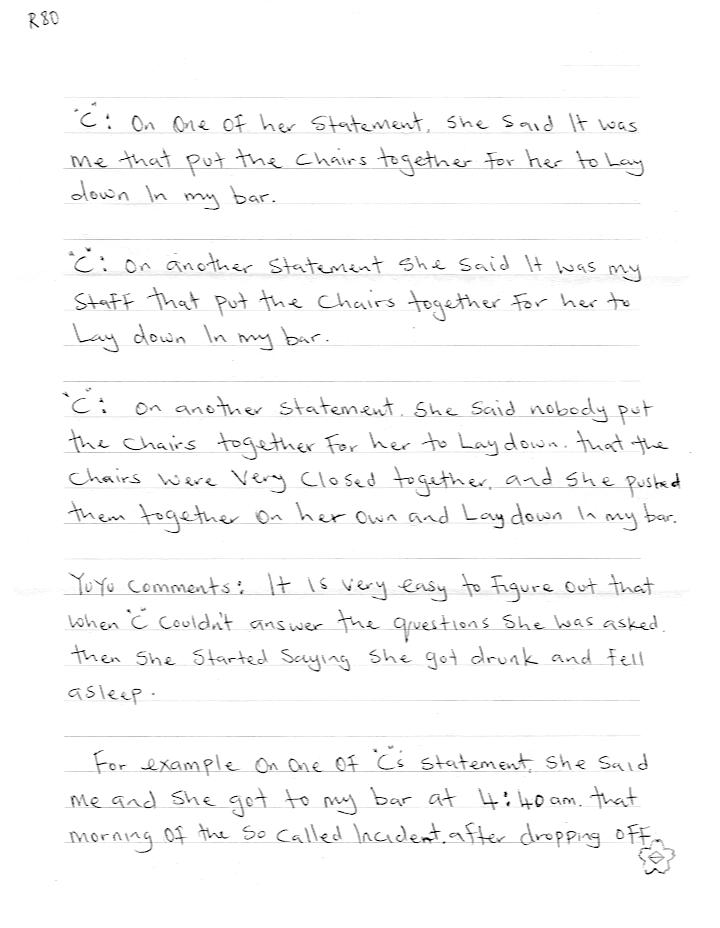 R80
"C": On One Of her Statement, She Said It was
me that put the Chairs together For her to Lay
down In my bar.
"C": On another Statement She Said It was my
Staff that put the Chairs together For her to
Lay down In my bar.
"C": On another Statement. She Said nobody put
the Chairs together For her to Lay down. that the
Chairs were Very Closed together, and She pushed
them together On her Own and Lay down In my bar.
YuYu Comments: It Is very easy to Figure Out that
when "C" Couldn't answer the questions She was asked.
then She Started Saying She got drunk and Fell
asleep.
For example On One Of "C"s Statement, She Said
me and She got to my bar at 4:40am. that
morning Of the So Called Incident. after dropping OFF.